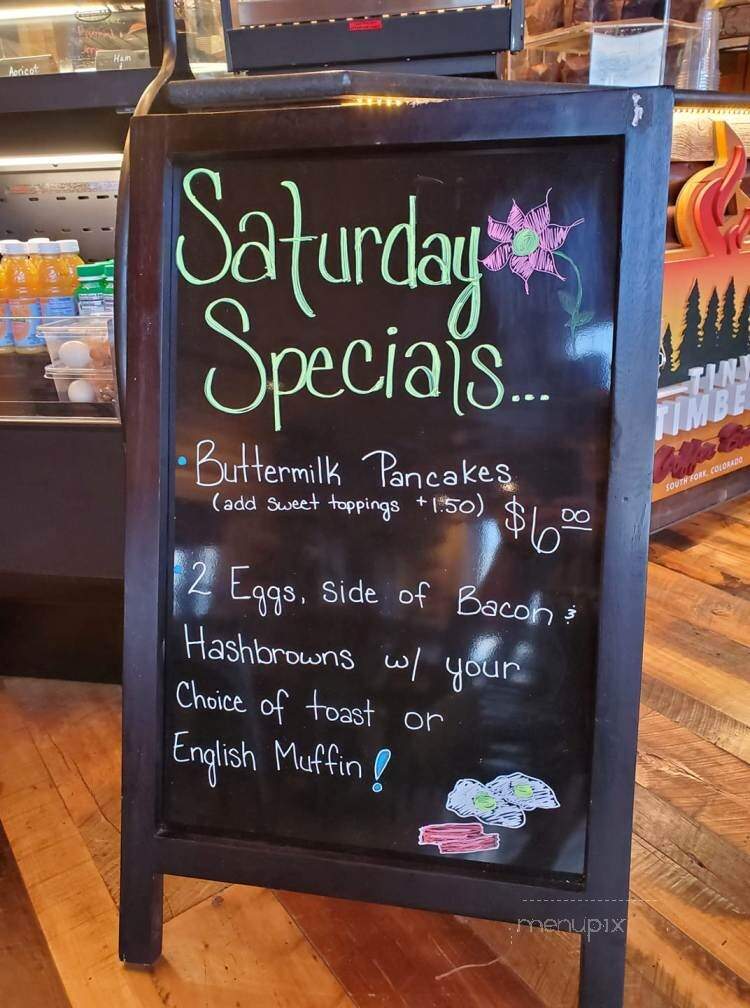 Apricot
Ham
Saturday
Specials...
• Buttermilk Pancakes
(add sweet toppings +1.50) $6.00
• 2 Eggs, side of Bacon &
Hashbrowns w/ your
Choice of toast or
English Muffin!
TINY
TIMBE
SOUTH FORK, COLORADO
menupix